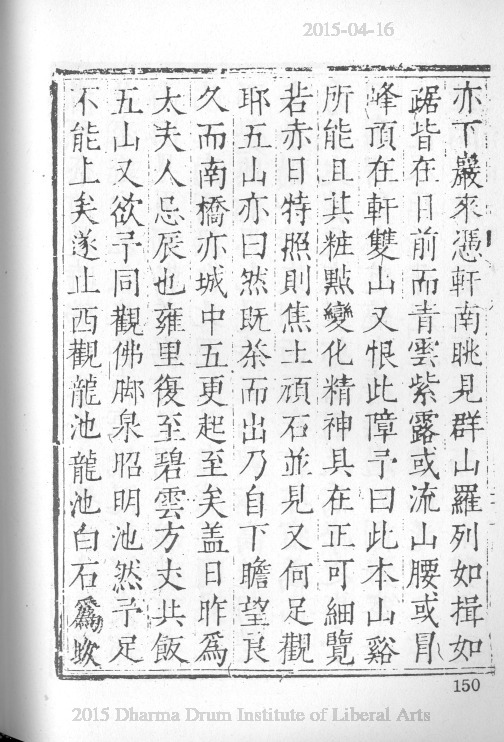 2015-04-16
亦下嚴來憑軒南眺見群山羅列如揖如
踞皆在日前而青雲紫露或流山腰或冐
峰頂在軒雙山又恨此障予曰此本山谿
所能且其粧點變化精神具在正可細覽
若赤日特照則焦土頑石並見又何足觀
耶五山亦曰然既茶而出乃自下瞻望良
久而南橋亦城中五更起至矣盖日昨爲
太夫人忌辰也雍里復至碧雲方丈共飯
五山又欲予同觀佛脚泉昭明池然予足
不能上矣遂止西觀龍池龍池白石爲坎
150
2015 Dharma Drum Institute of Liberal Arts